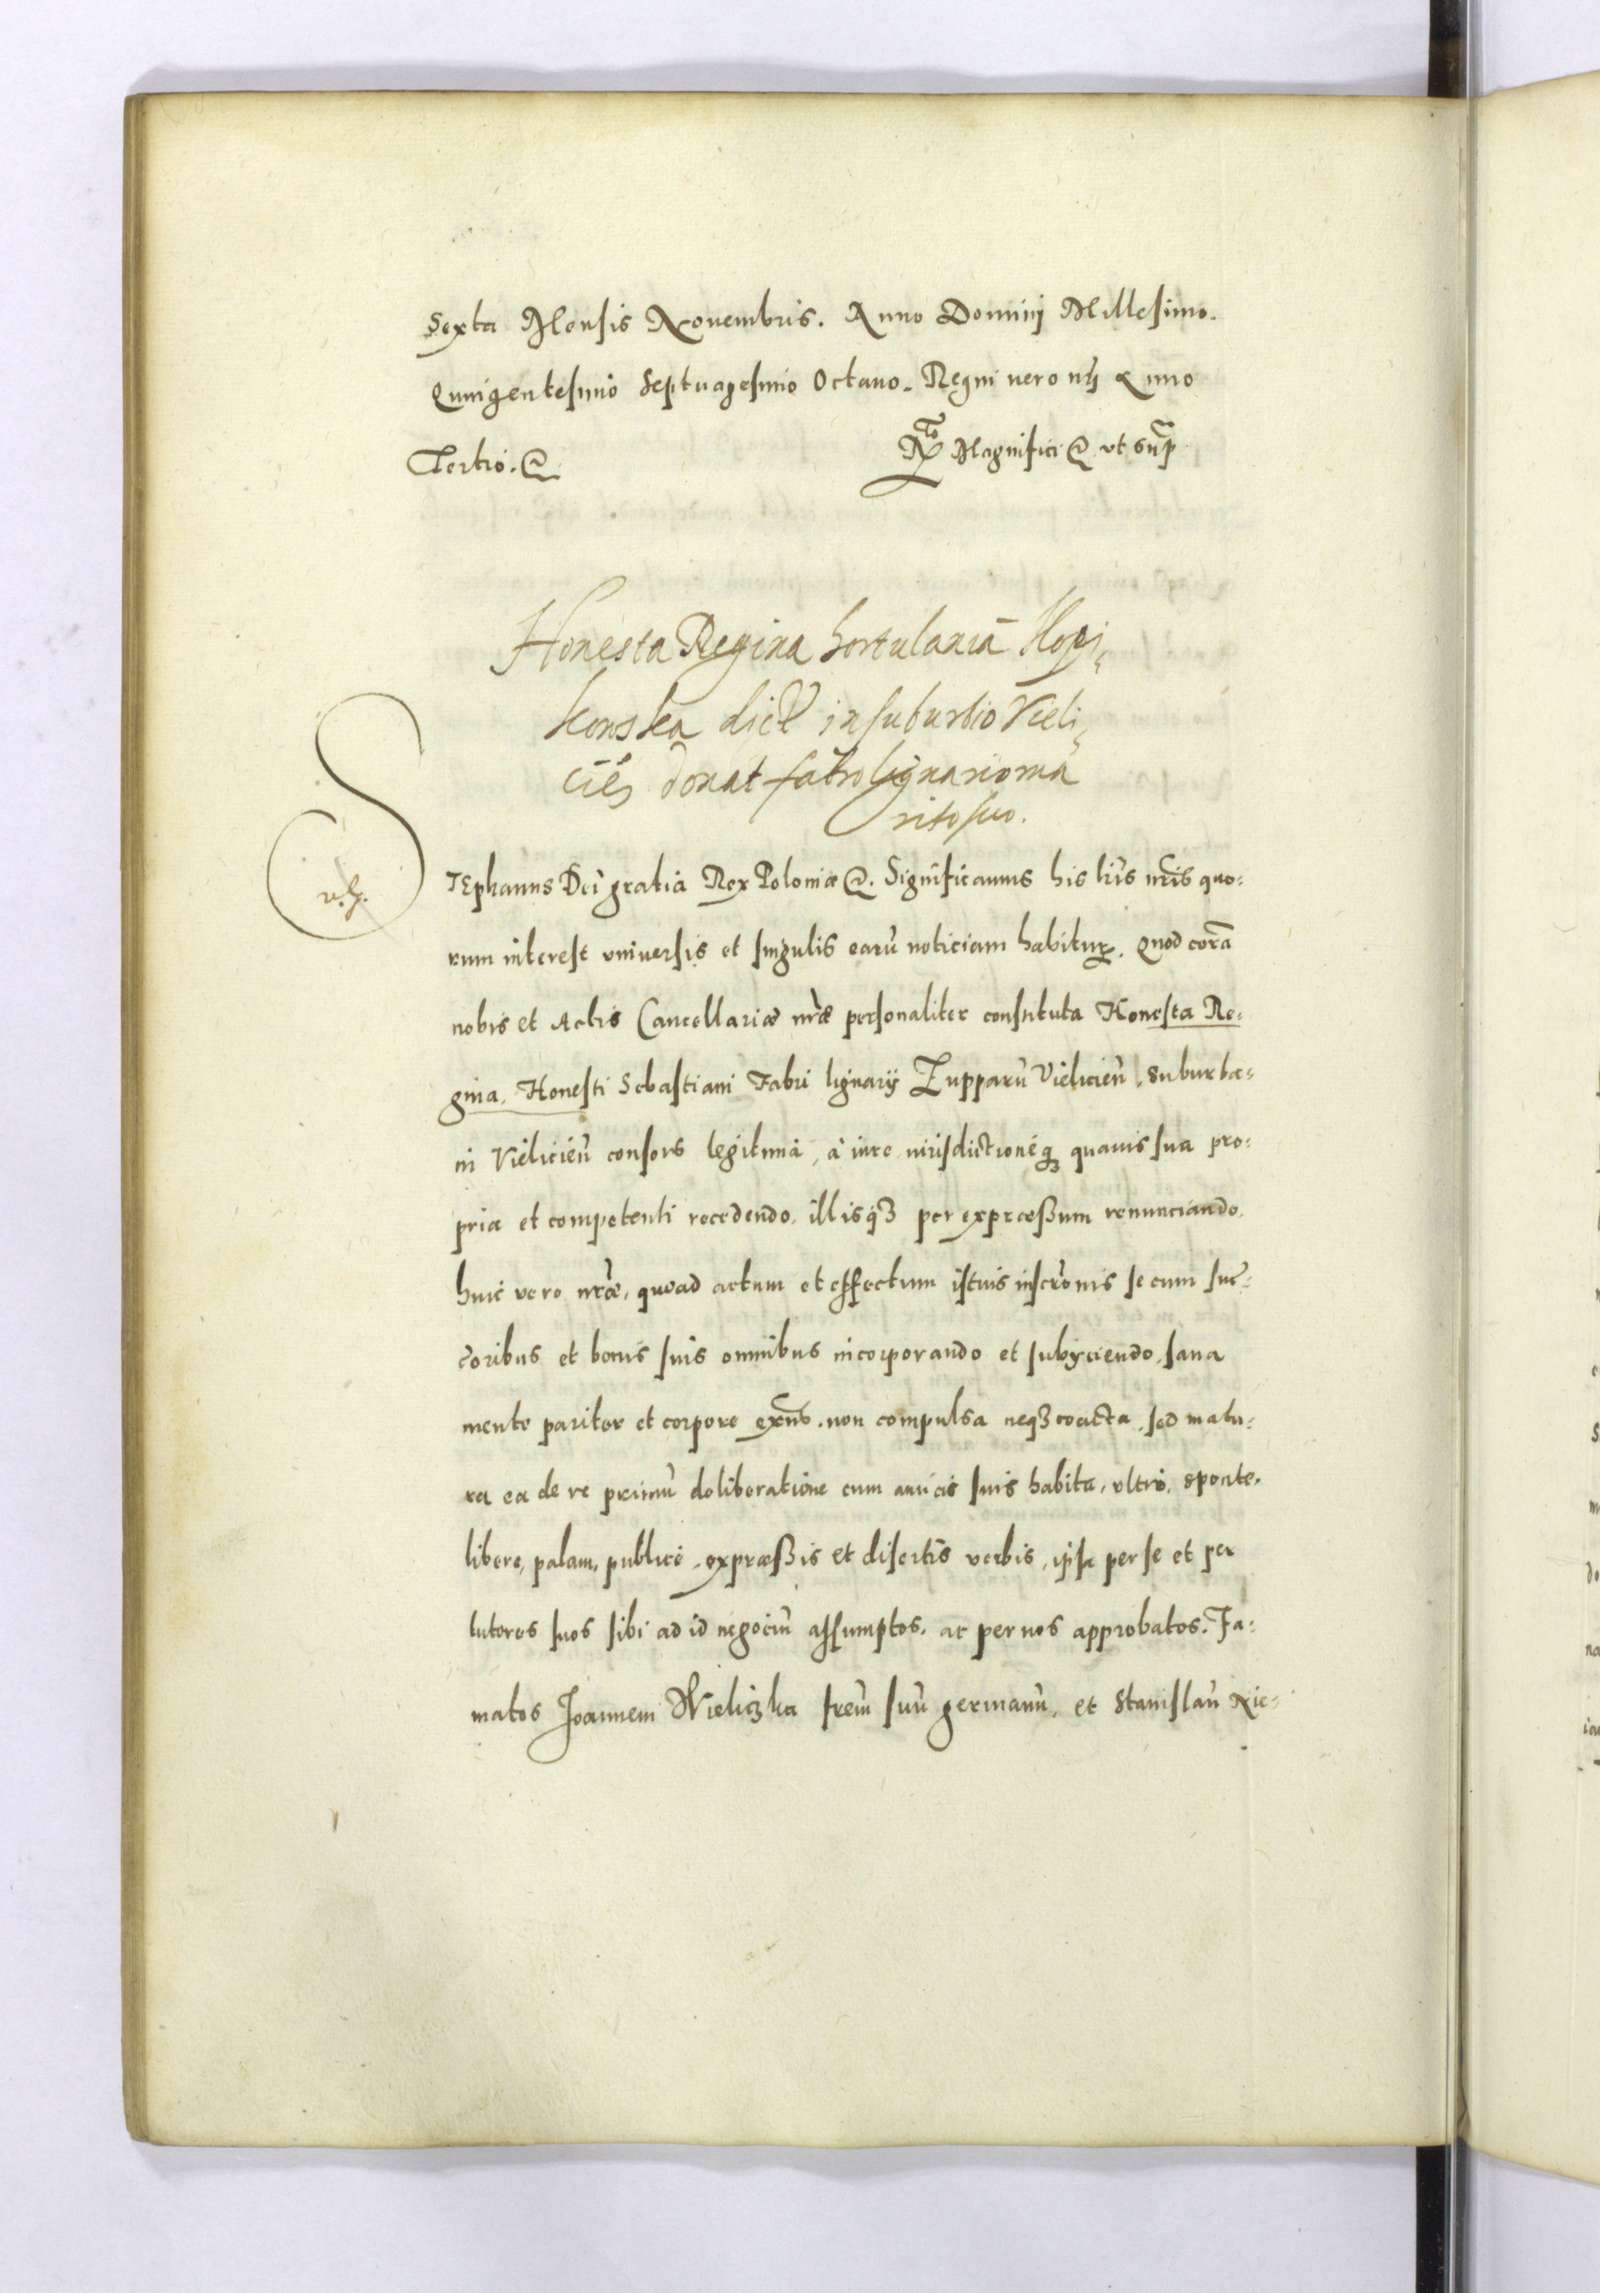 Sexta Mensis Nouembris. Anno Domini Millesimo.
Quingentesimo Septuagesimo Octauo. Regni uero nrj Anno
Tertio. &
Magnifici & vt sup
Honesta Regina hortulaniã
konska dict in suburbio Vieli,
cien donat fabro lignario ma
rito suo.
STEphanus Dei gratia Rex Poloniæ &. Significamus his lris nris quo:
rum interest vniuersis et singulis earũ noticiam habituꝝ. Quod corã
nobis et Actis Cancellariæ nræ personaliter constituta Honesta Re:
gina, Honesti Sebastiani Fabri lignarij Zupparũ Vielicieñ, suburba:
ni Vielicieñ consors legitima, à iure iurisdictioneq; quauis sua pro:
pria et competenti recedendo, illisqꝫ per expræßum renunciando,
huic vero nræ, quoad actum et effectum istius inscronis se cum suc:
coribus et bonis suis omnibus incorporando et subijciendo, sana
mente pariter et corpore exñs. non compulsa neqꝫ coacta, sed matu:
ra ea de re primũ deliberatione cum amicis suis habita, vltro, sponte,
libere, palam, publice, expræßis et disertis verbis, ipsa per se et per
tutores suos sibi ad id negociũ assumptos, ac per nos approbatos. Fa:
matos Joannem Wieliczka frem̃ suũ germanũ, et Stanislaũ Nie: